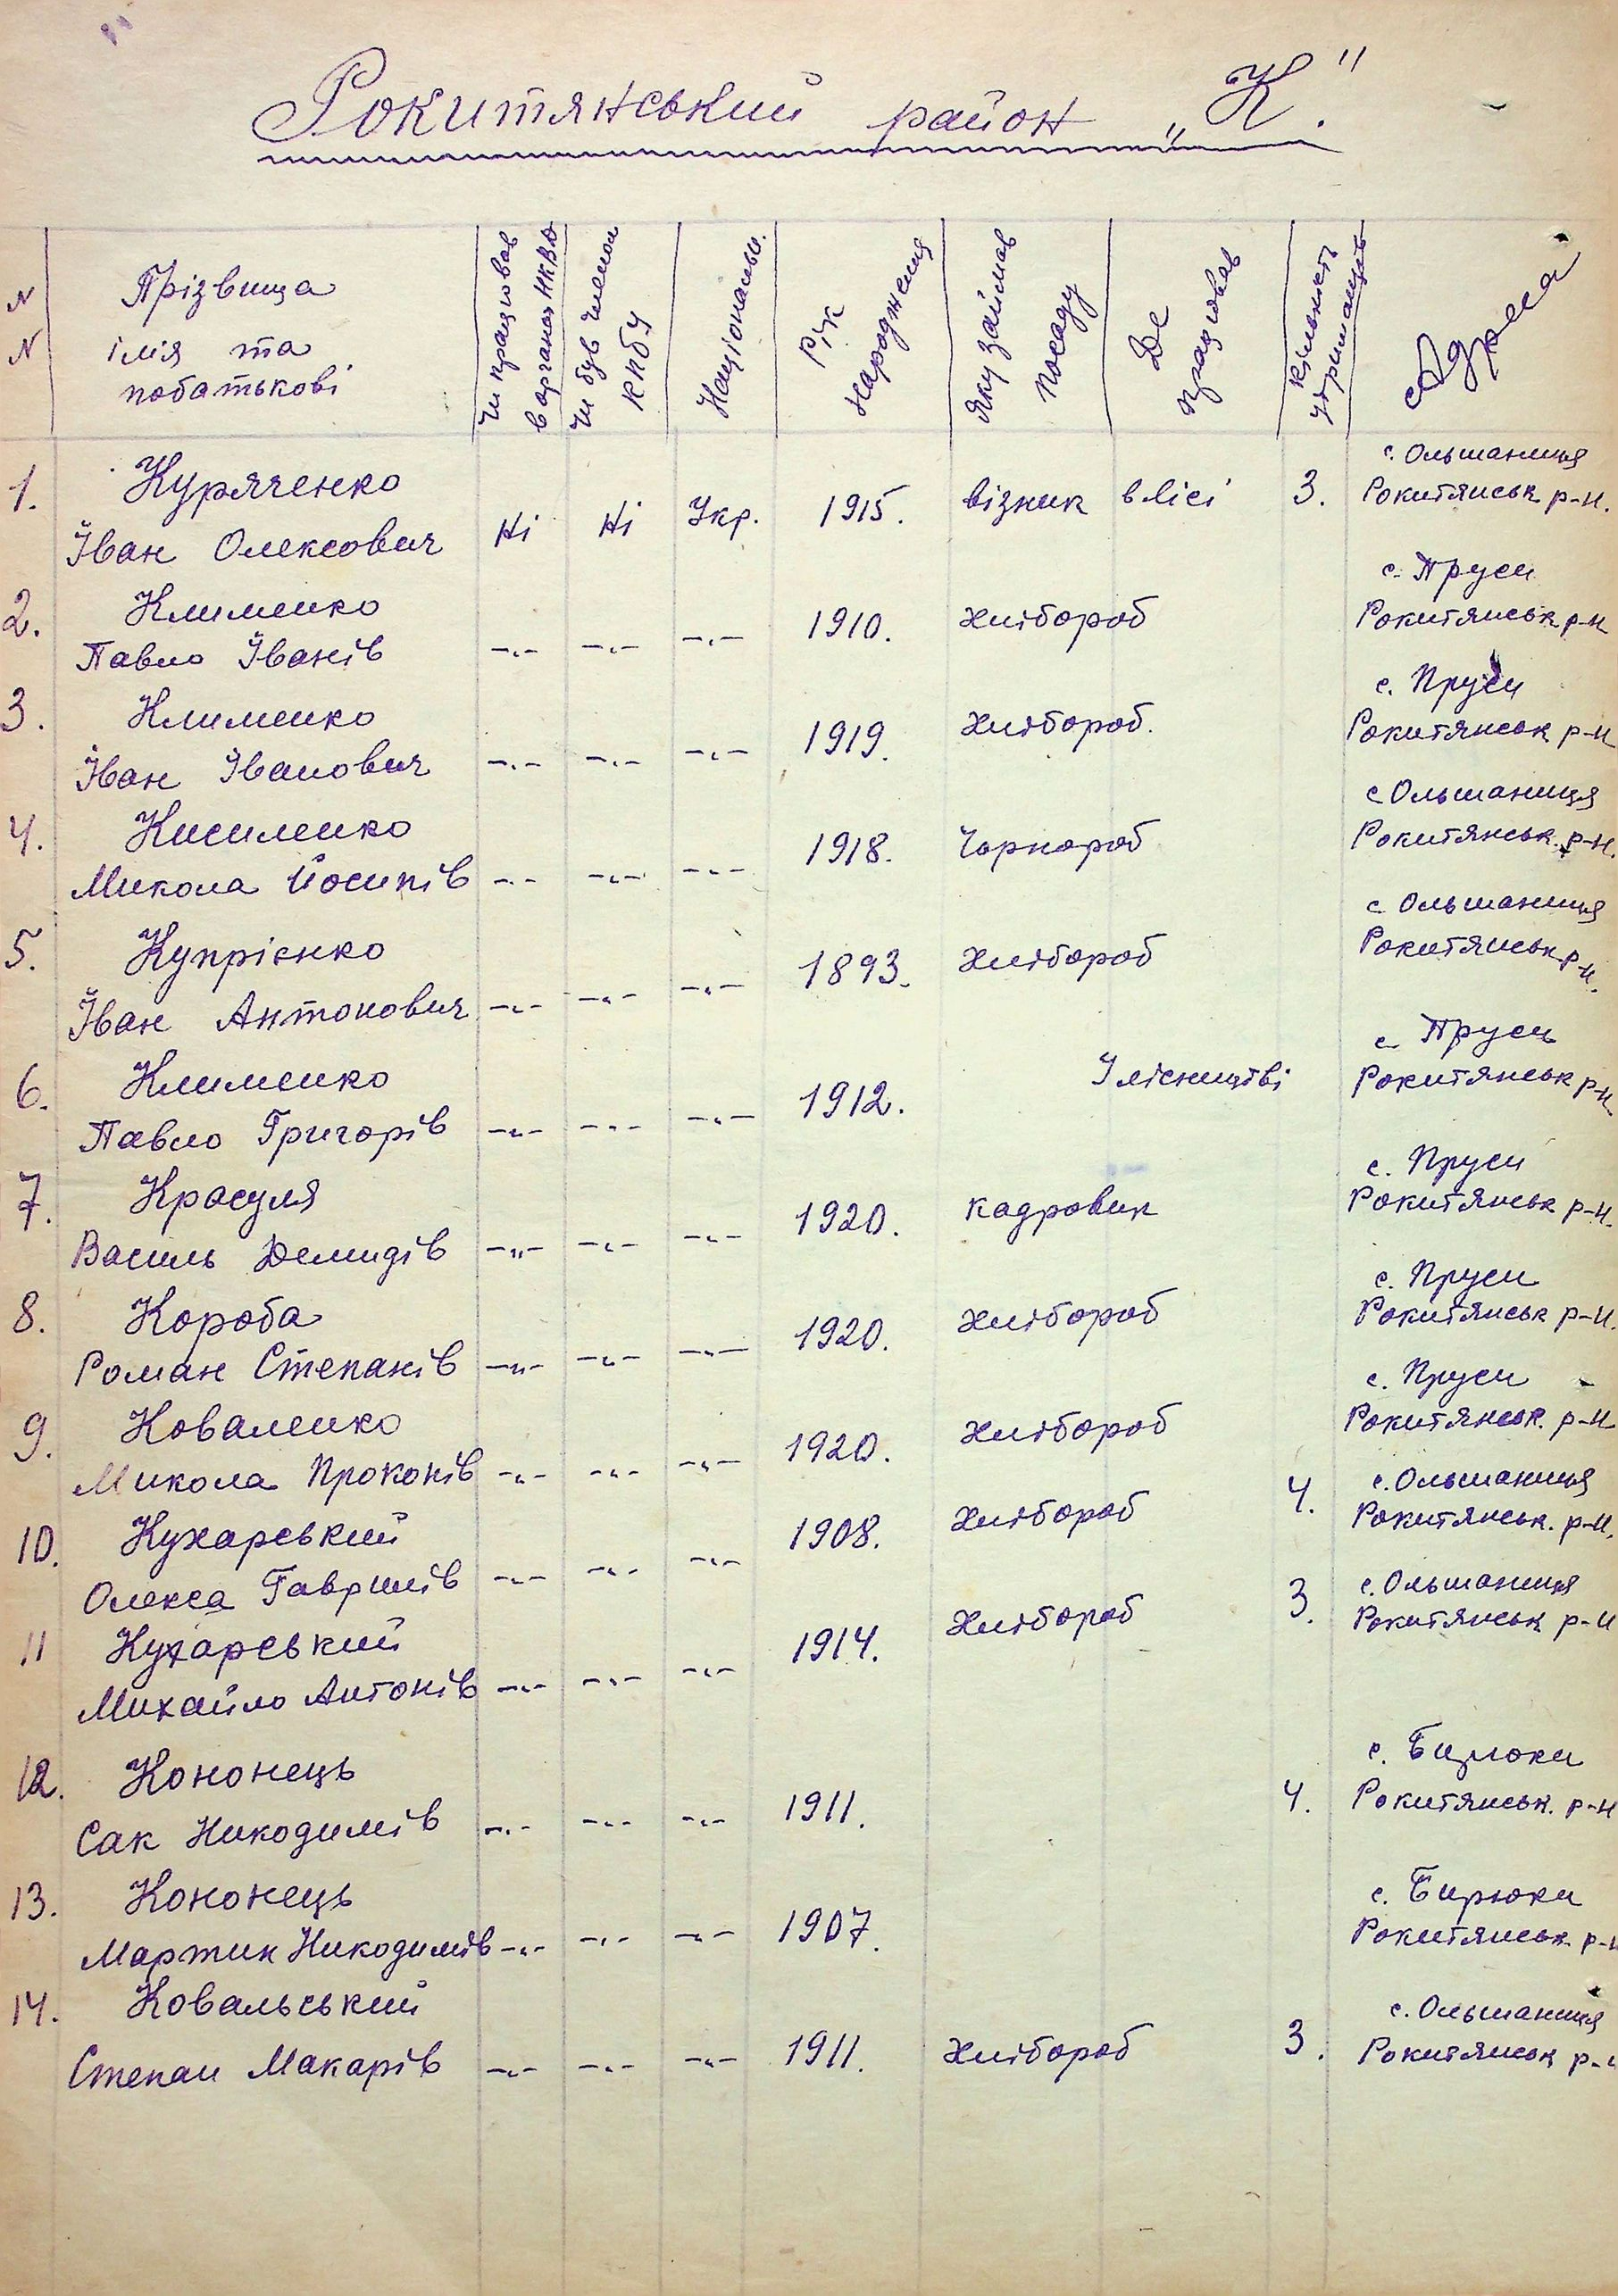 Рокитянський район „К."
N
N
Прізвища
імія та
побатькові
Чи працював
в органах НКВД
Чи був членом
КПбУ
Національн.
Рік
народження
Яку займав
посаду
Де
працював
Кількість
утриманців
Адреса
1. Куряченко
Іван Олексович Ні Ні Укр. 1915. візник в лісі 3. с. Ольшаниця
Рокитянськ р-н.
2. Клименко
Павло Іванів -"- -"- -"- 1910. хлібороб с. Пруси
Рокитянськ р-н
3. Клименко
Іван Іванович -"- -"- -"- 1919. хлібороб. с. Пруси
Рокитянськ р-н
4. Кисиленко
Микола Йосипів -"- -"- -"- 1918. Чорнороб с Ольшаниця
Рокитянськ. р-н.
5. Купрієнко
Іван Антонович -"- -"- -"- 1893. хлібороб с Ольшаниця
Рокитянськ р-н.
6. Клименко
Павло Григорів -"- -"- -"- 1912. У лісництві с. Пруси
Рокитянськ р-н.
7. Красуля
Василь Демидів -"- -"- -"- 1920. кадровик с. Пруси
Рокитянськ р-н.
8. Короба
Роман Степанів -"- -"- -"- 1920. хлібороб с. Пруси
Рокитянськ р-н.
9. Коваленко
Микола Прокопів -"- -"- -"- 1920. хлібороб с. Пруси
Рокитянськ. р-н
10. Кухарський
Олекса Гаврилів -"- -"- -"- 1908. хлібороб 4. с. Ольшаниця
Рокитянськ. р-н.
11 Кухарський
Михайло Антонів -"- -"- -"- 1914. хлібороб 3. с. Ольшаниця
Рокитянськ р-н
12. Кононець
Сак Никодимів -"- -"- -"- 1911. 4. с. Бирюки
Рокитянськ. р-н
13. Кононець
Мартин Никодимів -"- -"- -"- 1907. с. Бирюки
Рокитянськ р-н
14. Ковальський
Степан Макарів -"- -"- -"- 1911. хлібороб 3. с. Ольшаниця
Рокитянськ р-н